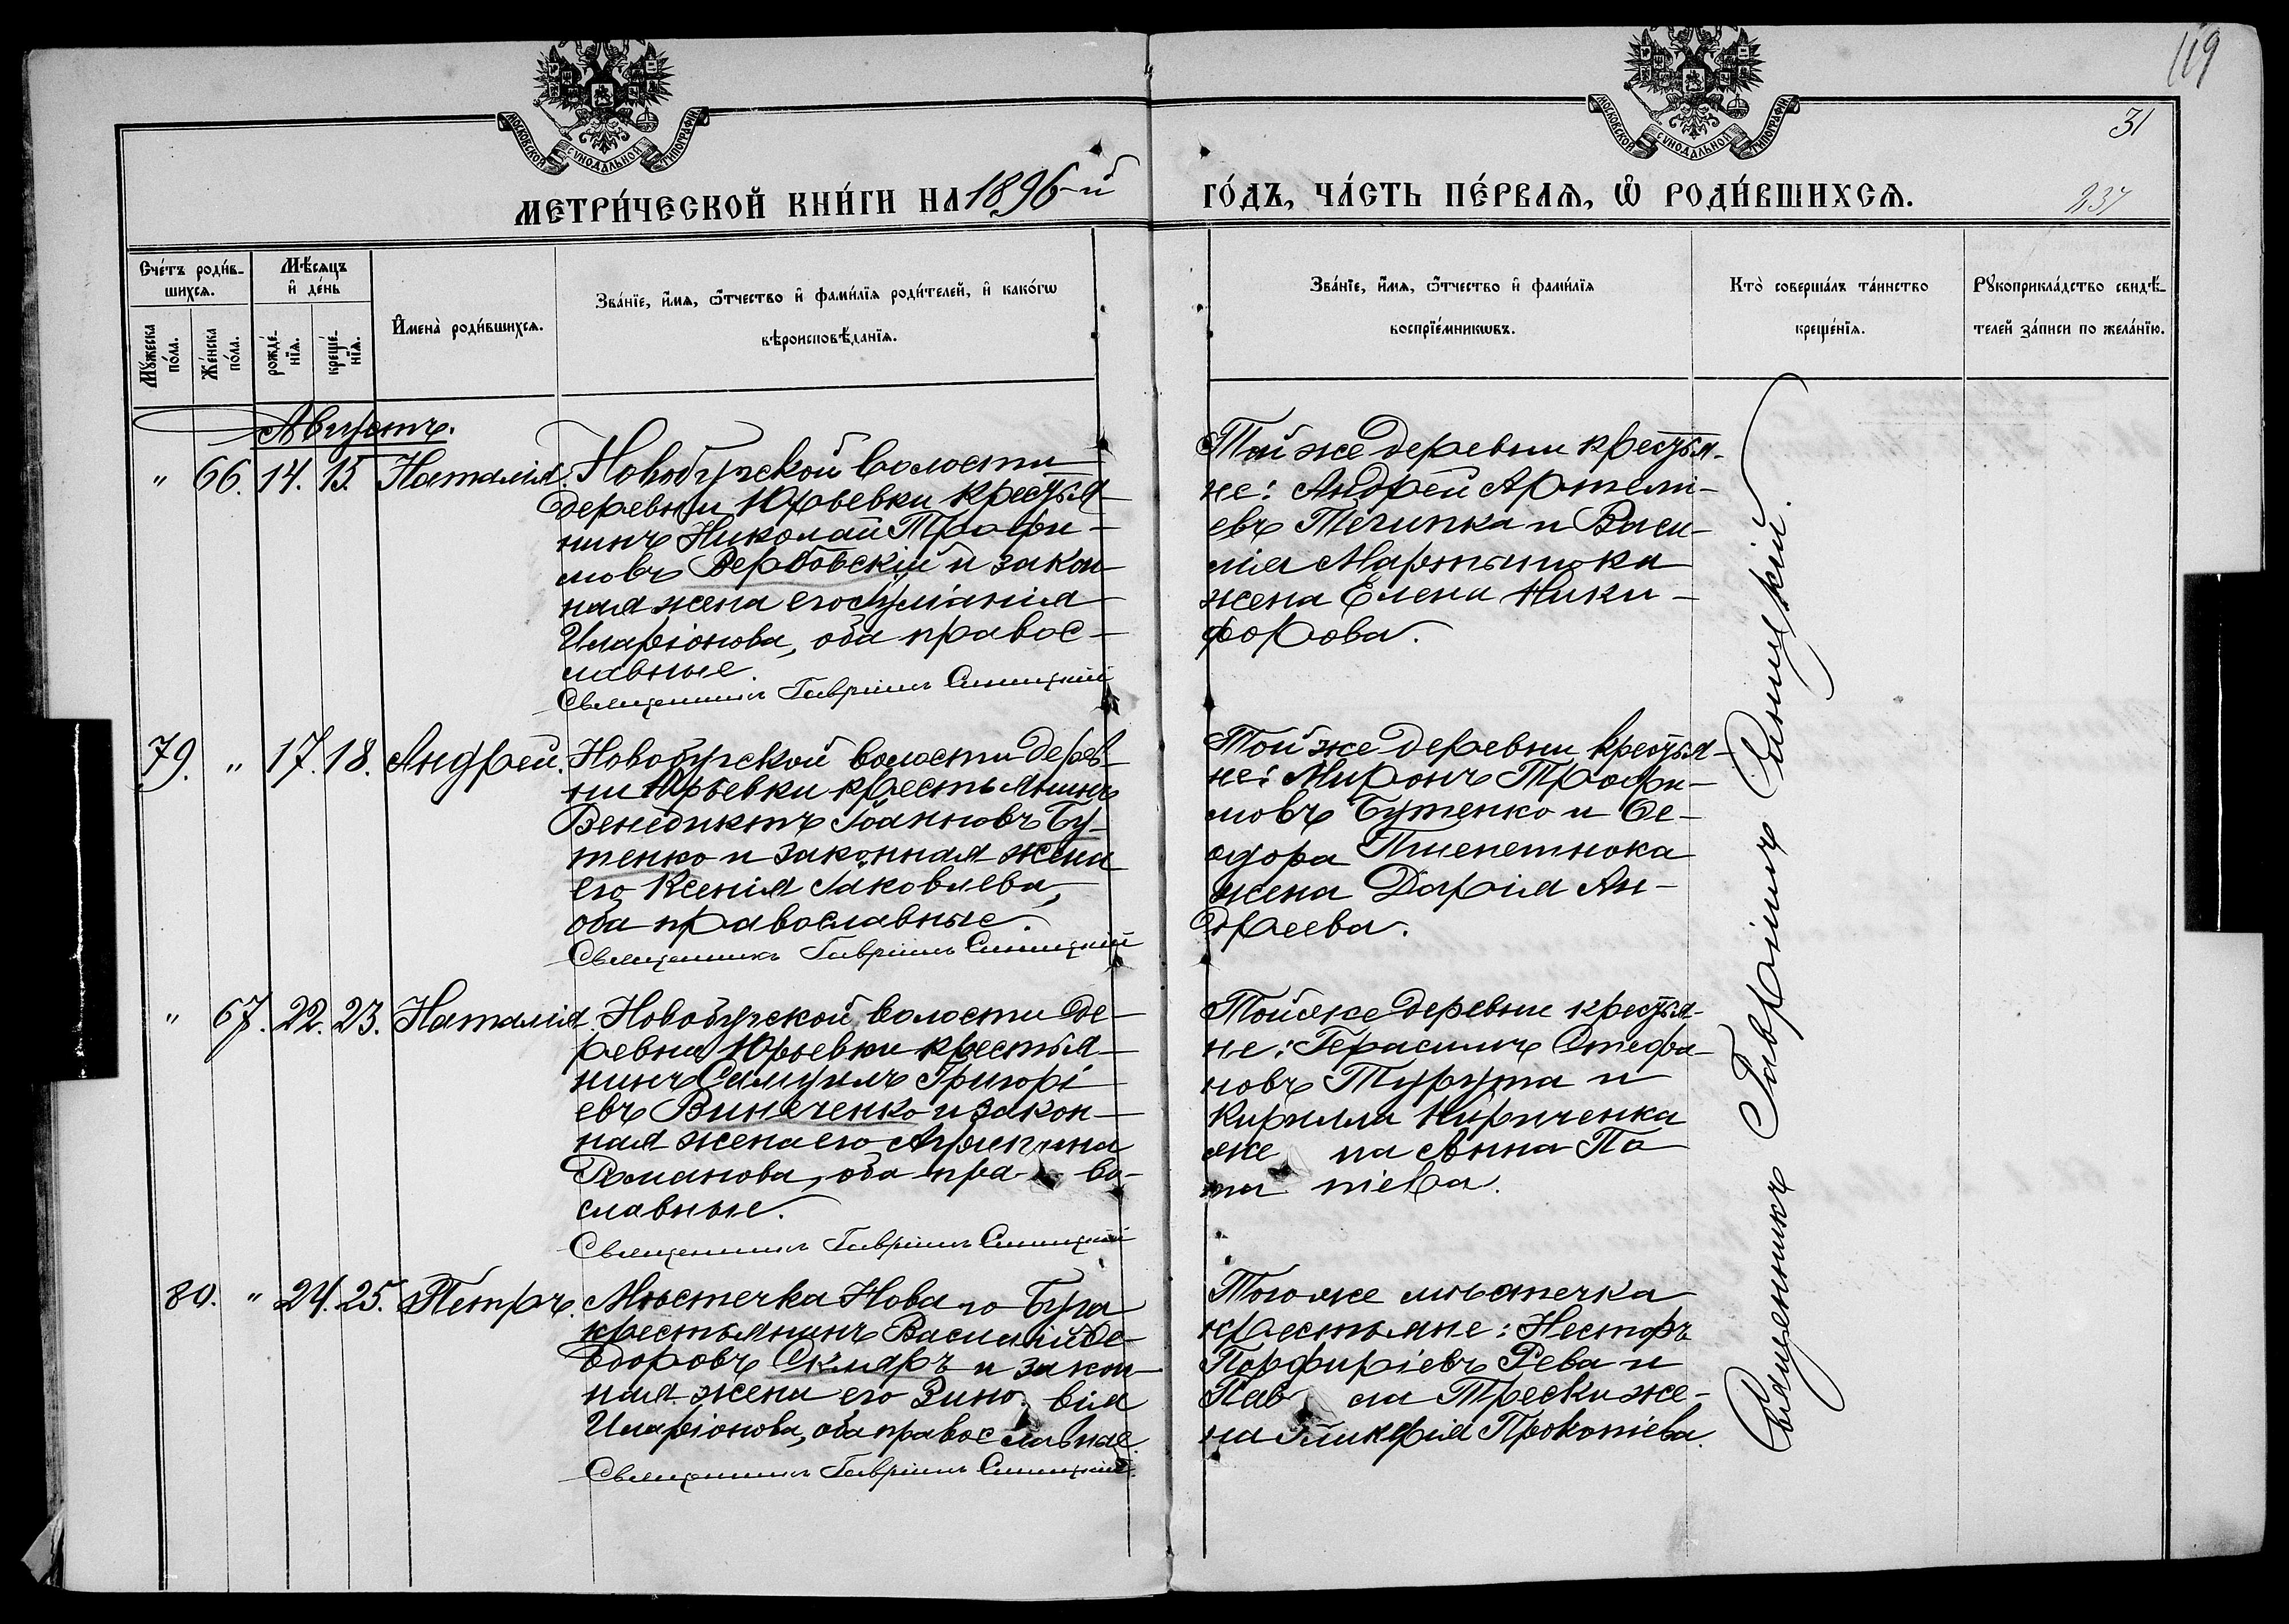 119
31
237
МОСКОВСКОЙ СѴНОДАЛЬНОЙ ТИПОГРАФІИ
МОСКОВСКОЙ СѴНОДАЛЬНОЙ ТИПОГРАФІИ
МЕТРИ́ЧЕСКОЙ КНИ́ГИ НА 1896-й ГО́ДЪ, ЧА́СТЬ ПЕ́РВАѦ, Ѽ РОДИ́ВШИХСѦ.
Сче́тъ роди́в-
шихсѧ.
Мѣ́сѧцъ
и҆ де́нь
Мꙋ́жеска
по́ла.
Же́нска
по́ла.
рожде́-
нїѧ.
креще́-
нїѧ.
И҆мена̀ роди́вшихсѧ.
Зва́нїе, и҆́мѧ, ѻ҆́тчество и҆ фами́лїѧ роди́телей, и҆ како́гѡ
вѣроисповѣ́данїѧ.
Зва́нїе, и҆́мѧ, ѻ҆́тчество и҆ фами́лїѧ
воспрїе́мникѡвъ.
Кто̀ соверша́лъ та́инство
креще́нїѧ.
Рꙋкоприкла́дство свидѣ́-
телей за́писи по жела́нїю.
Августъ.
" 66. 14. 15. Наталія. Новобугской волости
деревни Юрьевки крестья-
нинъ Николай Трофи-
мовъ Вербовскій и закон-
ная жена его Іуліанія
Иларіонова, оба правос-
лавные.
Священникъ Гавріилъ Синицкій
Той же деревни крестья-
не: Андрей Артемі-
евъ Тягипка и Васи-
лія Мартынюка
жена Елена Ники-
форова.
79. " 17. 18. Андрей. Новобугской волости дерев-
ни Юрьевки крестьянинъ
Венедиктъ Іоанновъ Бу-
тенко и законная жена
его Ксенія Іаковлева,
оба православные.
Священникъ Гавріилъ Синицкій
Той же деревни крестья-
не: Миронъ Трофи-
мовъ Бутенко и Ѳе-
одора Пшепетнюка
жена Дарія Ан-
дреева.
" 67. 22. 23. Наталія. Новобугской волости де-
ревни Юрьевки крестья-
нинъ Самуилъ Григорі-
евъ Винниченко и закон-
ная жена его Агрипина
Романова, оба право-
славные.
Священникъ Гавріилъ Синицкій
Той же деревни крестья-
не: Герасимъ Стефа-
новъ Турута и
Кирилла Кириченка
жена Анна По-
тапіева.
80. " 24. 25. Петръ. Мѣстечка Новаго Буга
крестьянинъ Василій Ѳе-
одоровъ Скляръ и закон-
ная жена его Зиновія
Иларіонова, оба православные.
Священникъ Гавріилъ Синицкій.
Того же мѣстечка
крестьяне: Несторъ
Порфиріевъ Рева и
Павла Трески же-
на Гликерія Прокопіева.
Священникъ Гавріилъ Синицкій.